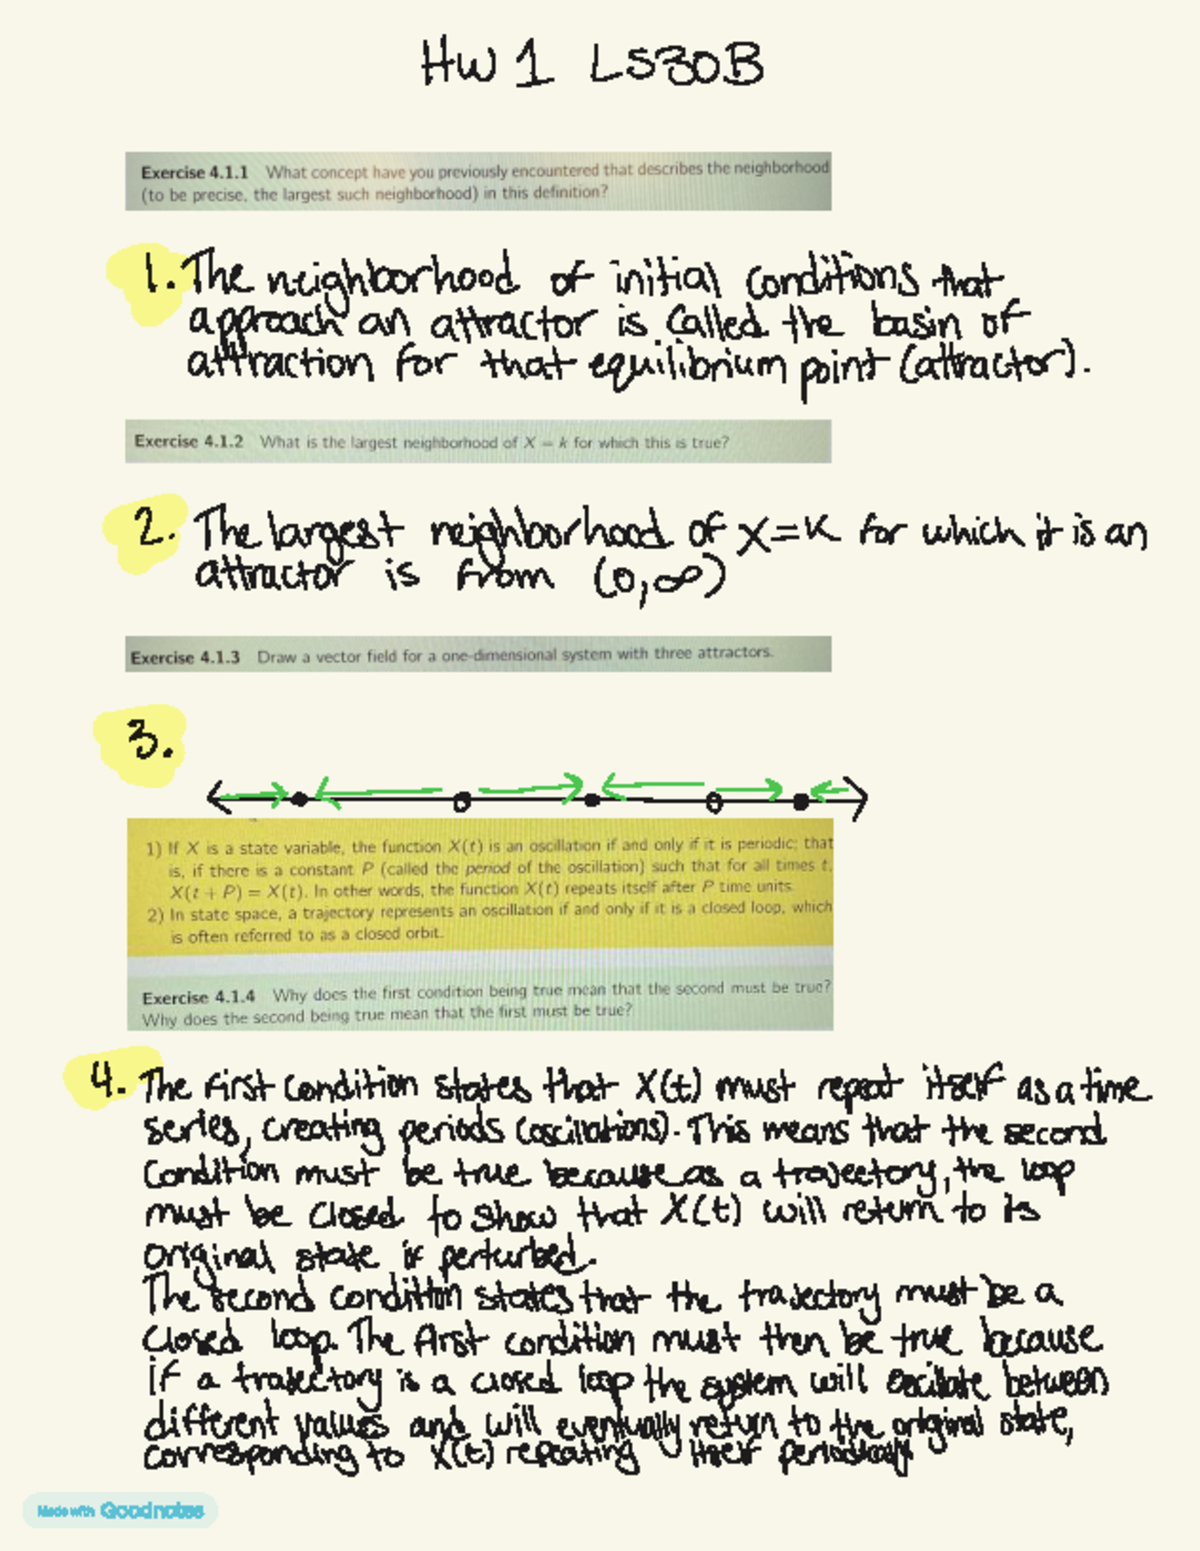 HW 1 LS30B
Exercise 4.1.1 What concept have you previously encountered that describes the neighborhood
(to be precise, the largest such neighborhood) in this definition?
1. The neighborhood of initial conditions that
approach an attractor is called the basin of
atttraction for that equilibrium point (attractor).
Exercise 4.1.2 What is the largest neighborhood of X = k for which this is true?
2. The largest neighborhood of X=K for which it is an
attractor is from (0,∞)
Exercise 4.1.3 Draw a vector field for a one-dimensional system with three attractors.
3.
1) If X is a state variable, the function X(t) is an oscillation if and only if it is periodic; that
is, if there is a constant P (called the period of the oscillation) such that for all times t,
X(t + P) = X(t). In other words, the function X(t) repeats itself after P time units.
2) In state space, a trajectory represents an oscillation if and only if it is a closed loop, which
is often referred to as a closed orbit.
Exercise 4.1.4 Why does the first condition being true mean that the second must be true?
Why does the second being true mean that the first must be true?
4. The first condition states that X(t) must repeat itself as a time
series, creating periods (oscillations). This means that the second
condition must be true because as a trajectory, the loop
must be closed to show that X(t) will return to its
original state if perturbed.
The second condition states that the trajectory must be a
closed loop. The first condition must then be true because
if a trajectory is a closed loop the system will oscillate between
different values and will eventually return to the original state,
corresponding to X(t) repeating itself periodically
Made with Goodnotes